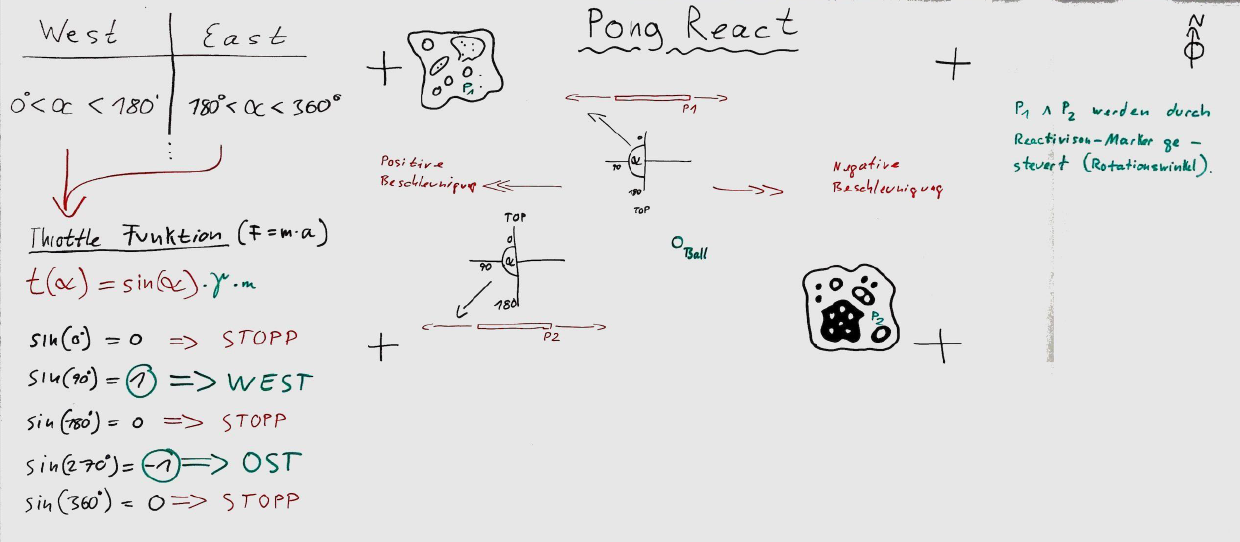 Pong React
N
West East
0° < α < 180° 180° < α < 360°
Throttle Funktion (F=m·a)
t(α) = sin(α)·γ·m
sin(0°) = 0 => STOPP
sin(90°) = 1 => WEST
sin(180°) = 0 => STOPP
sin(270°) = -1 => OST
sin(360°) = 0 => STOPP
P1
P1
0
90 α
180
TOP
Positive
Beschleunigung
Negative
Beschleunigung
TOP
0
90 α
180
P2
Ball
P2
P1 ∧ P2 werden durch
Reactivison-Marker ge-
steuert (Rotationswinkel).